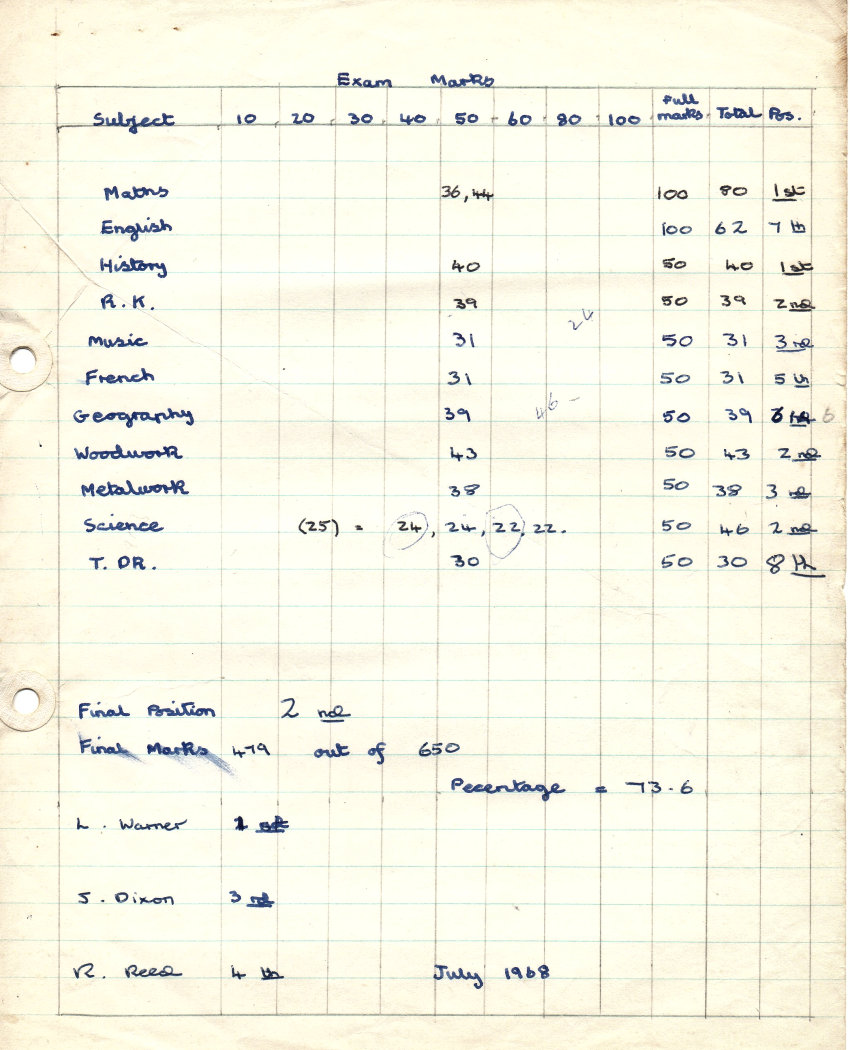 Exam Marks
Subject 10 20 30 40 50 60 80 100 Full marks Total Pos.
Maths 36, 44 100 80 1st
English 100 62 7th
History 40 50 40 1st
R.K. 39 50 39 2nd
Music 31 24 50 31 3rd
French 31 50 31 5th
Geography 39 46 - 50 39 6
Woodwork 43 50 43 2nd
Metalwork 38 50 38 3rd
Science (25) = 24, 24, 22, 22. 50 46 2nd
T. DR. 30 50 30 8th
Final Position 2nd
Final Marks 479 out of 650
Pecentage = 73.6
L. Warner 1st
J. Dixon 3rd
R. Reed 4th July 1968